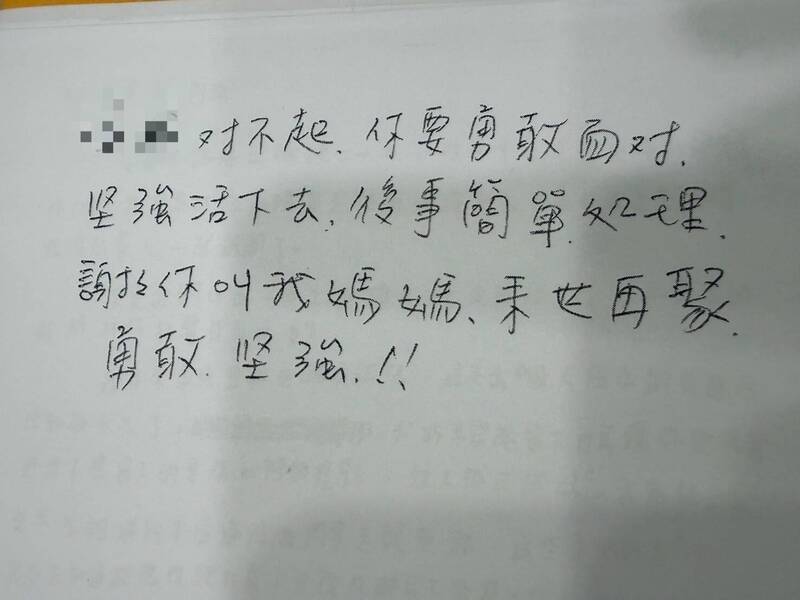 对不起.你要勇敢面对.
坚強活下去.後事簡單.处理.
謝謝你叫我媽媽、来世再聚.
勇敢.坚強.!!